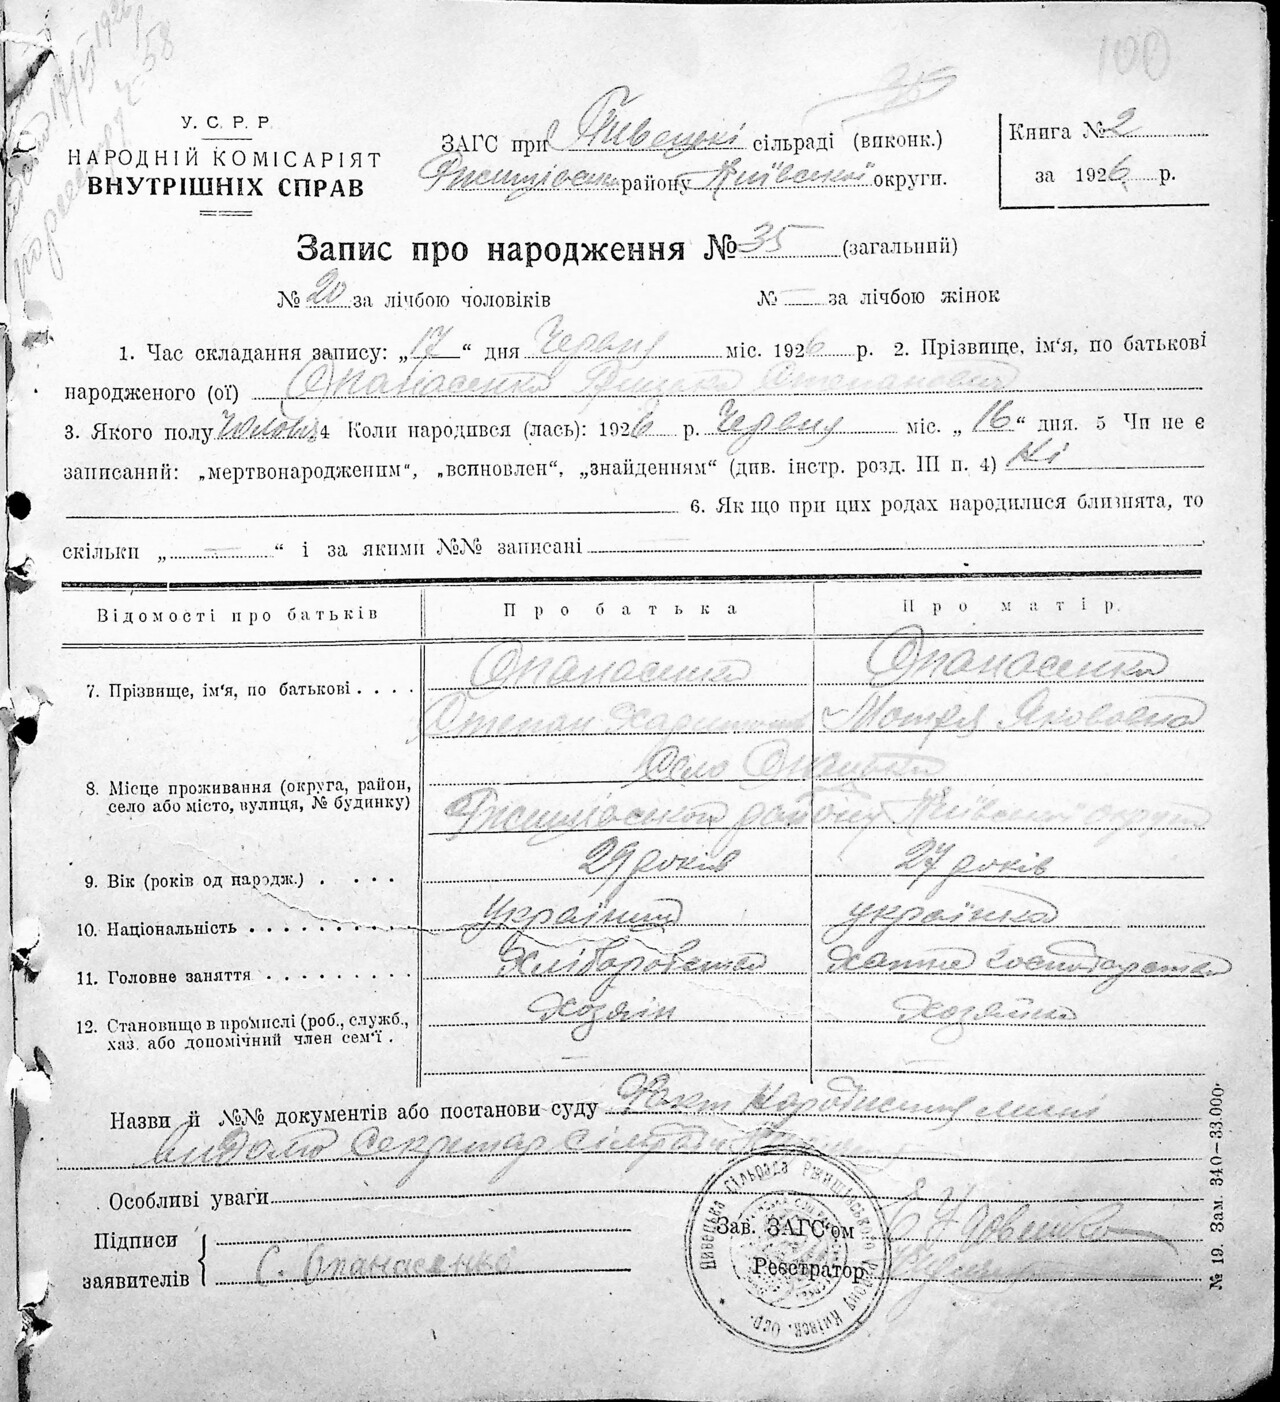 100
У. С. Р. Р.
НАРОДНІЙ КОМІСАРІЯТ
ВНУТРІШНІХ СПРАВ
ЗАГС при Пивецькі сільраді (виконк.)
району Київської округи.
Книга № 2
за 1926 р.
Запис про народження № 35 (загальний)
№ 20 за лічбою чоловіків № — за лічбою жінок
1. Час складання запису: „17“ дня Червня міс. 1926 р. 2. Прізвище, ім'я, по батькові
народженого (ої) Опанасенко Степанович
3. Якого полу Чолов. 4 Коли народився (лась): 1926 р. Червня міс. „16“ дня. 5 Чи не є
записаний: „мертвонародженим“, „всиновлен“, „знайденням“ (див. інстр. розд. III п. 4) Ні
6. Як що при цих родах народилися близнята, то
скільки „ — “ і за якими №№ записані —
Відомості про батьків Про батька Про матір.
7. Прізвище, ім'я, по батькові . . . . Опанасенко Опанасенко
Степан Мотря Якововна
8. Місце проживання (округа, район,
село або місто, вулиця, № будинку)
Село
району Київської округи
9. Вік (років од народж.) . . . . 29 років 27 років
10. Національність . . . . . . . . . . українець українка
11. Головне заняття . . . . . . . . . Хліборобство Хатне господарство
12. Становище в промислі (роб., служб.,
хаз. або допомічний член сем'ї . Хозяїн Хозяйка
Назви й №№ документів або постанови суду Факт народження мині
видомо Секретар сільради
Особливі уваги
Підписи
заявителів
С. Опанасенко
Зав. ЗАГС'ом
Реєстратор
Пивецька Сільрада Ржищівського району Київськ. Окр.
№ 19. Зам. 340—33.000.